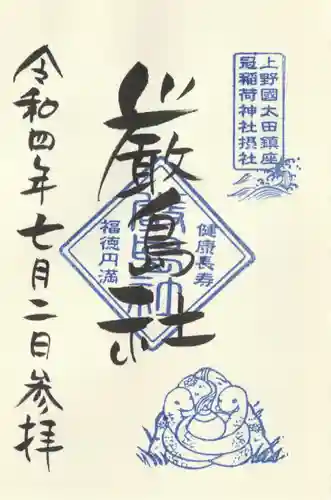 上野國太田鎮座
冠稲荷神社摂社
厳島社
健康長寿
厳島神社
福徳円満
令和四年七月二日参拝